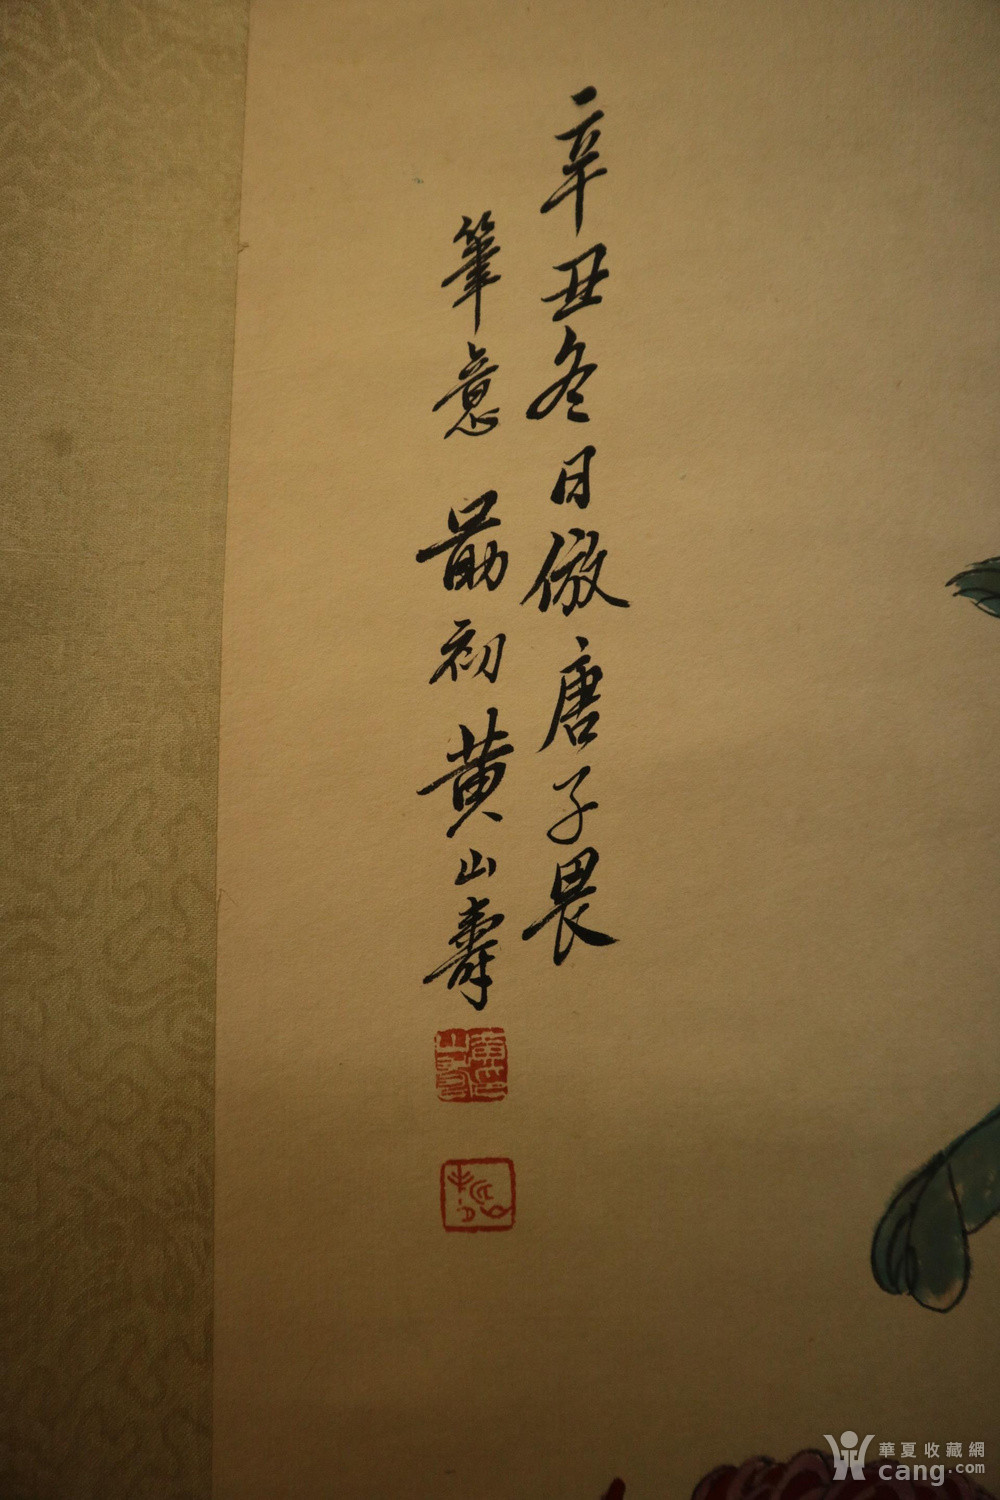 辛丑冬日倣唐子畏
筆意 勗初黄山壽
華夏收藏網
cang.com